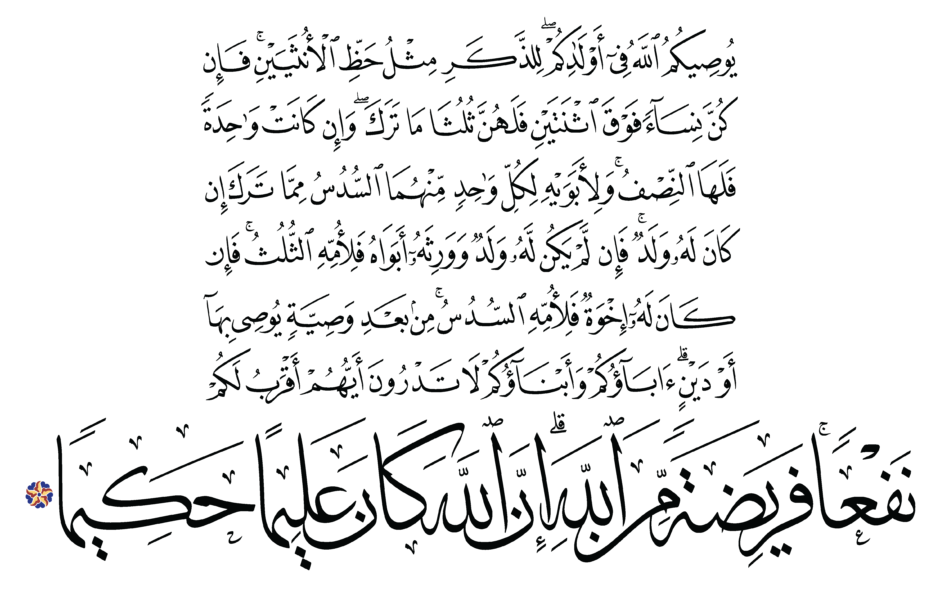 يُوصِيكُمُ ٱللَّهُ فِىٓ أَوْلَٰدِكُمْ ۖ لِلذَّكَرِ مِثْلُ حَظِّ ٱلْأُنثَيَيْنِ ۚ فَإِن
كُنَّ نِسَآءً فَوْقَ ٱثْنَتَيْنِ فَلَهُنَّ ثُلُثَا مَا تَرَكَ ۖ وَإِن كَانَتْ وَٰحِدَةً
فَلَهَا ٱلنِّصْفُ ۚ وَلِأَبَوَيْهِ لِكُلِّ وَٰحِدٍ مِّنْهُمَا ٱلسُّدُسُ مِمَّا تَرَكَ إِن
كَانَ لَهُۥ وَلَدٌ ۚ فَإِن لَّمْ يَكُن لَّهُۥ وَلَدٌ وَوَرِثَهُۥٓ أَبَوَاهُ فَلِأُمِّهِ ٱلثُّلُثُ ۚ فَإِن
كَانَ لَهُۥٓ إِخْوَةٌ فَلِأُمِّهِ ٱلسُّدُسُ ۚ مِنۢ بَعْدِ وَصِيَّةٍ يُوصِى بِهَآ
أَوْ دَيْنٍ ۗ ءَابَآؤُكُمْ وَأَبْنَآؤُكُمْ لَا تَدْرُونَ أَيُّهُمْ أَقْرَبُ لَكُمْ
نَفْعًا ۚ فَرِيضَةً مِّنَ ٱللَّهِ ۗ إِنَّ ٱللَّهَ كَانَ عَلِيمًا حَكِيمًا